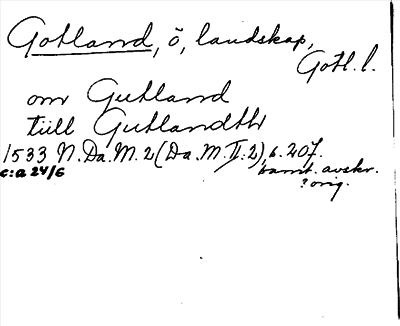 Gotland, ö, landskap,
Gotl. l.
om Gutland
tiill Gutlandth
1533 N.Da.M. 2 (Da.M. II:2), s. 207.
c:a 24/6
samt. avskr.
? orig.